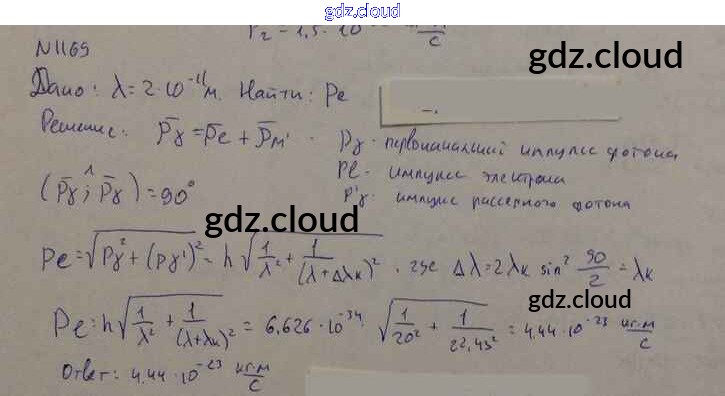 gdz.cloud
P₂ = 1,5 · 10⁻ м/с
N1169
gdz.cloud
Дано: λ = 2·10⁻¹¹ м. Найти: Pe
Решение: p̄γ = p̄e + p̄м' . pγ - первоначальный импульс фотона
Pe - импульс электрона
(p̄γ ^; p̄γ) = 90° P'γ - импульс рассеяного фотона
gdz.cloud
Pe = √(Pγ² + (pγ')²) = h √(1/λ² + 1/(λ+Δλк)²) , где Δλ = 2λк sin² 90/2 = λк
gdz.cloud
Pe = h √(1/λ² + 1/(λ+λк)²) = 6,626 · 10⁻³⁴ √(1/20² + 1/22,43²) = 4,44 · 10⁻²³ кг·м/с
Ответ: 4,44 · 10⁻²³ кг·м/с